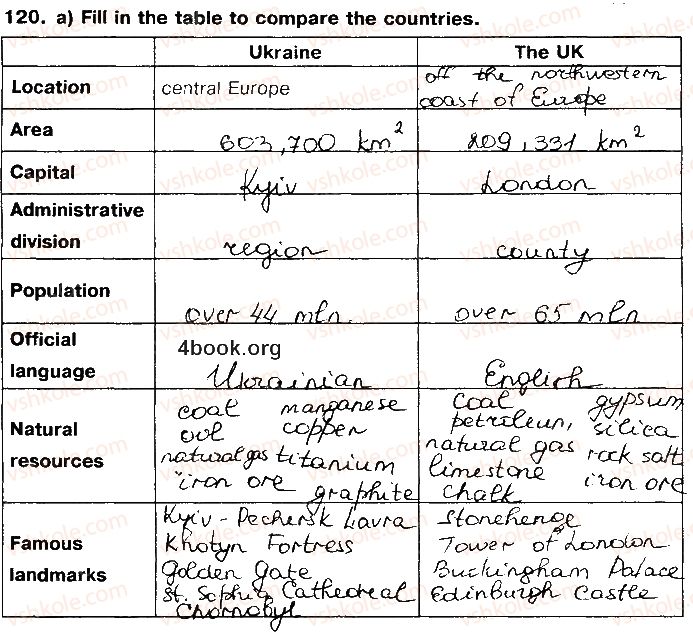 120. a) Fill in the table to compare the countries.
Ukraine The UK
Location central Europe off the northwestern coast of Europe
Area 603,700 km² 209,331 km²
Capital Kyiv London
Administrative division region county
Population over 44 mln. over 65 mln
Official language 4book.org Ukrainian English
Natural resources
coal manganese
ool copper
natural gas titanium
iron ore graphite
coal gypsum
petroleun, silica
natural gas rock salt
limestone iron ore
chalk
Famous landmarks
Kyiv-Pechersk Lavra
Khotyn Fortress
Golden Gate
St. Sophia Cathedreal
Chornobyl
Stonehenge
Tower of London
Buckingham Palace
Edinburgh Castle
vshkole.com